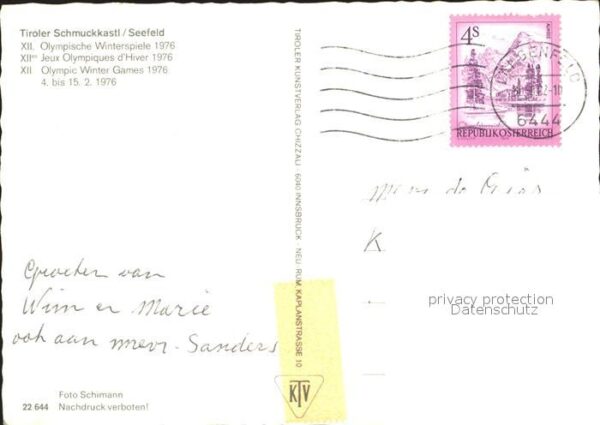 Tiroler Schmuckkastl / Seefeld
XII. Olympische Winterspiele 1976
XIIes Jeux Olympiques d'Hiver 1976
XII Olympic Winter Games 1976
4. bis 15. 2. 1976
4S
REPUBLIK ÖSTERREICH
LÄNGENFELD
6444
TIROLER KUNSTVERLAG CHIZZALI · 6040 INNSBRUCK - NEU RUM, KAPLANSTRASSE 10
K
Groeten van
Wim en Marie
ook aan mevr. Sanders
privacy protection
Datenschutz
KTV
Foto Schimann
22 644 Nachdruck verboten!